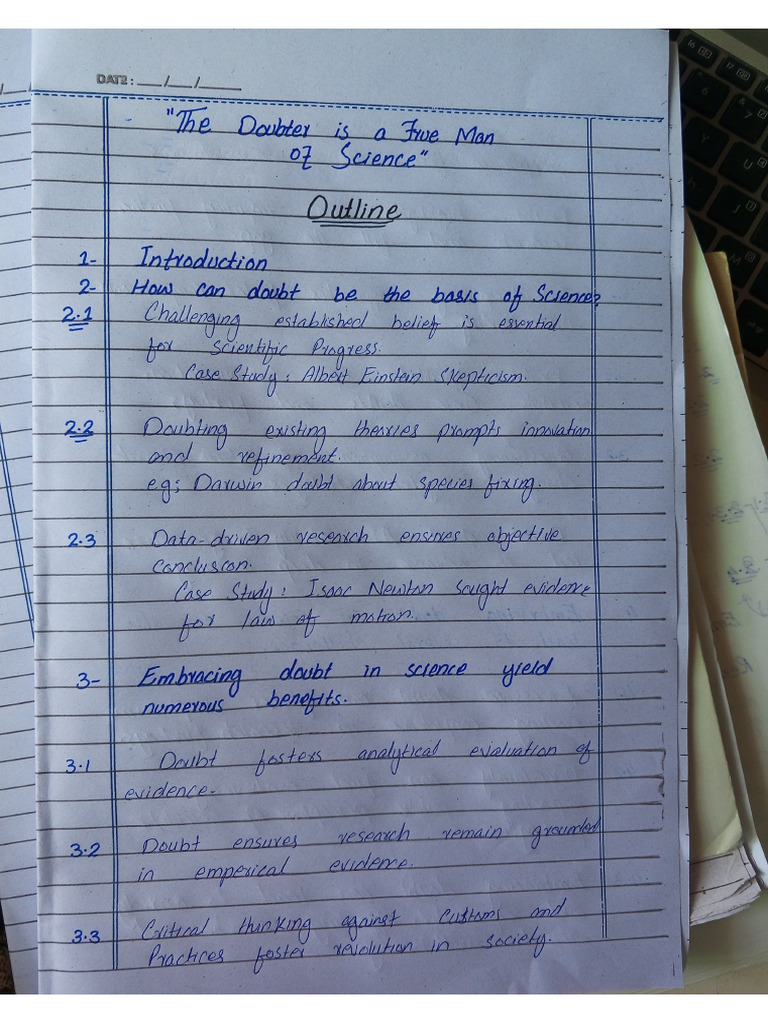 DATE: ___/___/____
"The Doubter is a True Man
of Science"
Outline
1- Introduction
2- How can doubt be the basis of Science?
2.1 Challenging established belief is essential
for Scientific Progress.
Case Study: Albert Einstein Skepticism.
2.2 Doubting existing theories prompts innovation
and refinement.
e.g; Darwin doubt about species fixing.
2.3 Data-driven research ensures objective
concluscon.
Case Study: Isaac Newton sought evidence
for law of motion.
3- Embracing doubt in science yield
numerous benefits.
3.1 Doubt fosters analytical evaluation of
evidence.
3.2 Doubt ensures research remain grounded
in emperical evidence.
3.3 Critical thinking against customs and
Practices foster revolution in society.